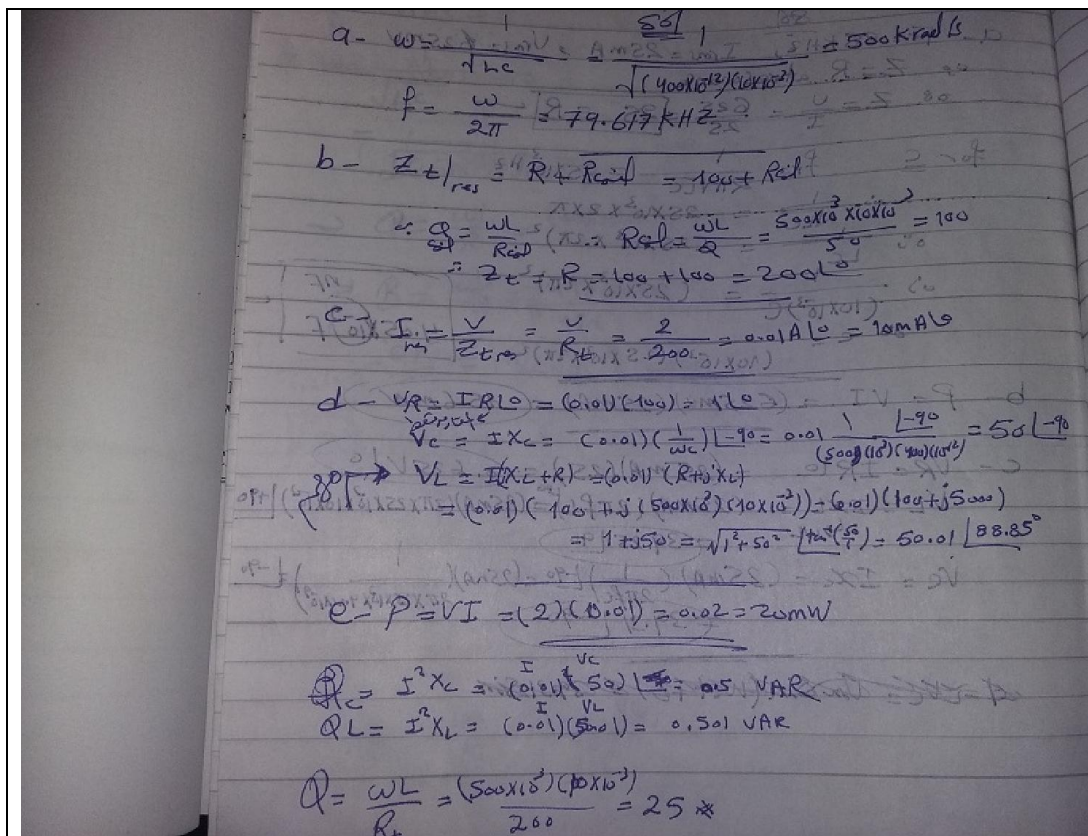 sol
a- ω = 1/√LC = 1/√((400×10^-12)(10×10^-3)) = 500 K rad/s
f = ω/2π = 79.617 KHZ
b - Zt|res = R + Rcoil = 100 + Rcoil
∵ Qcoil = ωL/Rcoil ∴ Rcoil = ωL/Q = 500×10^3×10×10^-3/50 = 100
∴ Zt = R = 100 + 100 = 200∠0
c - Ires = V/Zt res = V/Rt = 2/200 = 0.01A∠0 = 10mA∠0
d - VR = IR∠0 = (0.01)(100) = 1∠0
Vc = IXc = (0.01)(1/ωc)∠-90 = 0.01 1/(500)(10^3)(400)(10^-12) ∠-90 = 50∠-90
VL = I(XL+R) = (0.01)(R+jXL)
= (0.01)(100 + j(500×10^3)(10×10^-3)) = (0.01)(100+j5000)
= 1+j50 = √1²+50² ∠tan^-1(50/1) = 50.01∠88.85°
e - P = VI = (2)(0.01) = 0.02 = 20mW
Qc = I²Xc = (0.01)(50) = 0.5 VAR
QL = I²XL = (0.01)(50.01) = 0.501 VAR
Q = ωL/Rt = (500×10^3)(10×10^-3)/200 = 25